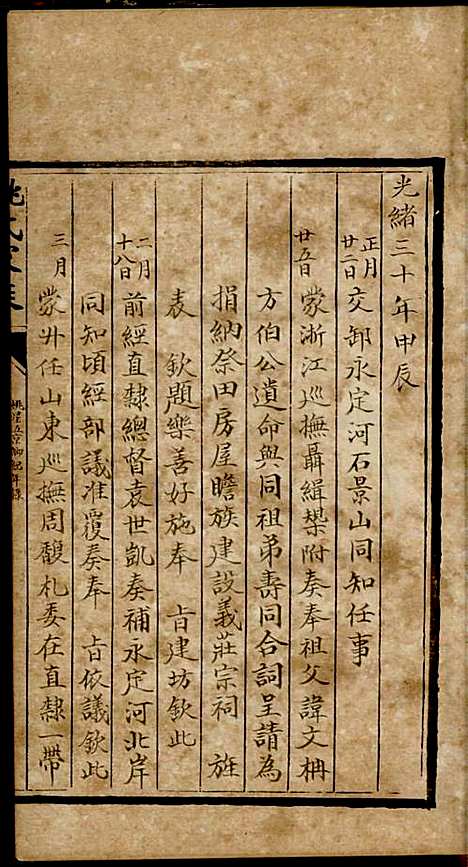 光緒三十年甲辰
正月
廿二日交卸永定河石景山同知任事
廿五日蒙浙江巡撫聶緝槼附奏奉祖父諱文枏
方伯公遺命與同祖弟壽同合詞呈請為
捐納祭田房屋贍族建設義莊宗祠　旌
表　欽題樂善好施奉　旨建坊欽此
二月
十八日前經直隸總督袁世凱奏補永定河北岸
同知頃經部議准覆奏奉　旨依議欽此
三月蒙升任山東巡撫周馥札委在直隸一帶